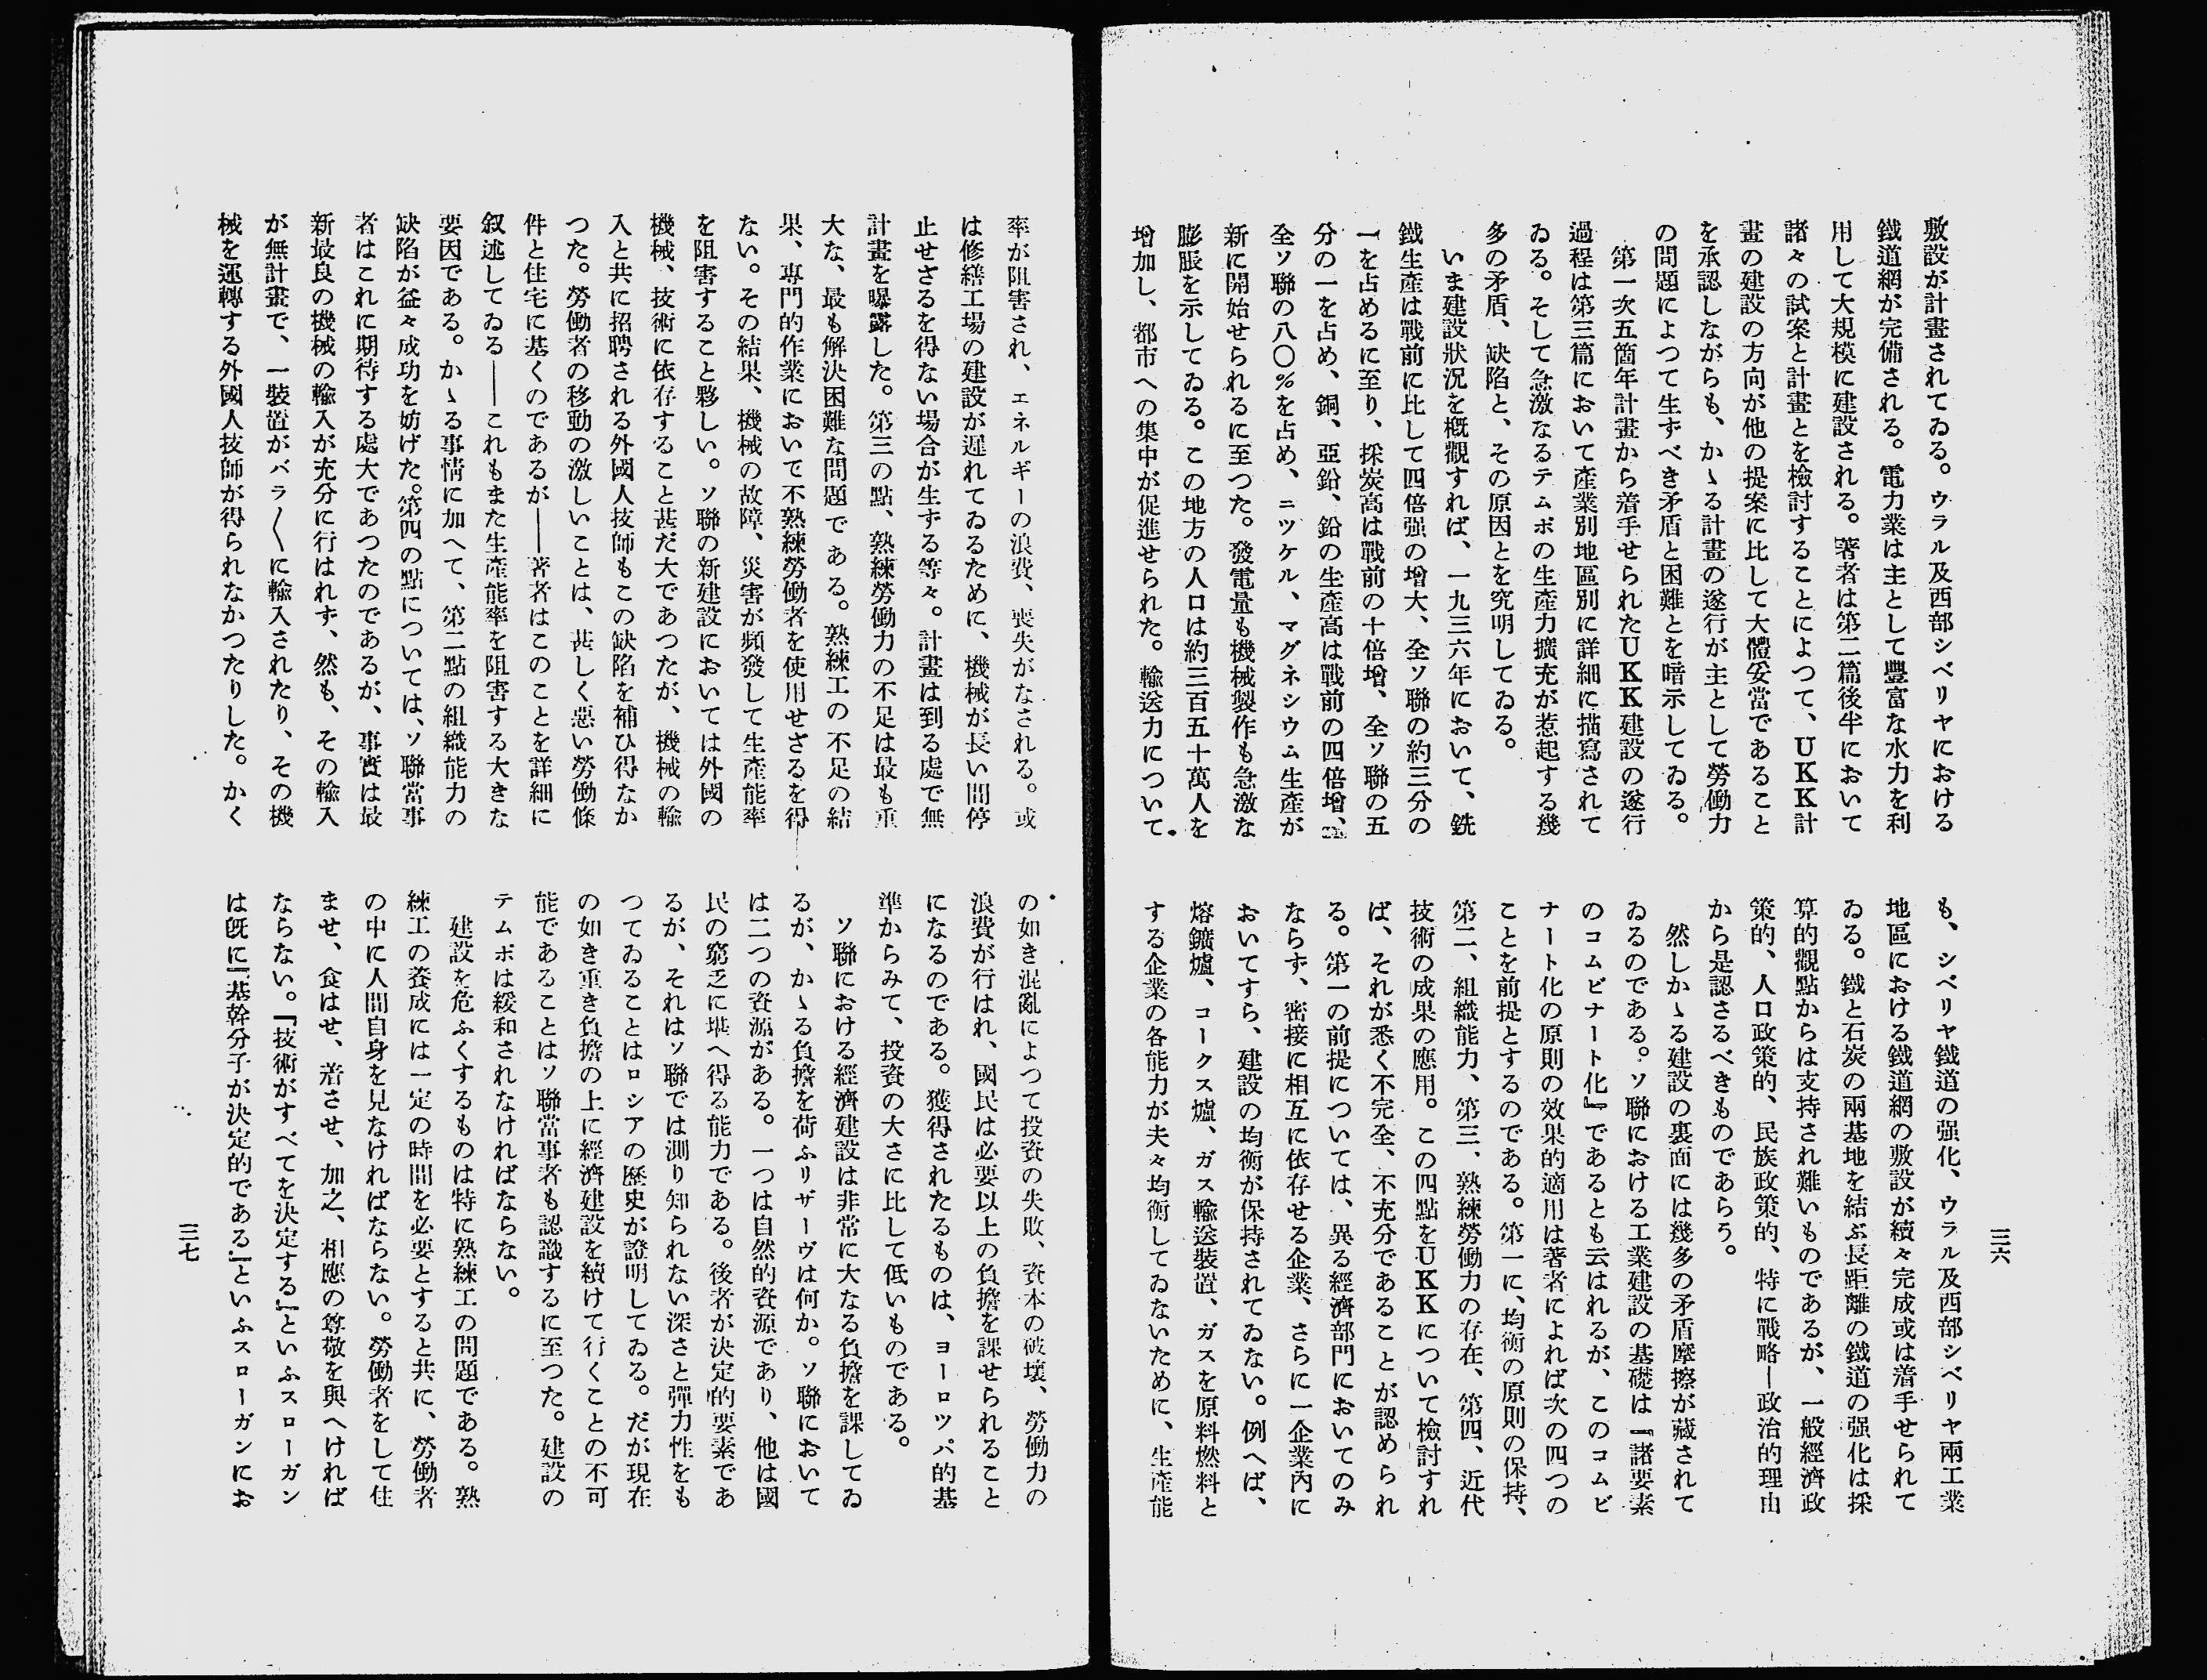 敷設が計畫されてゐる。ウラル及西部シベリヤにおける
鐵道網が完備される。電力業は主として豐富な水力を利
用して大規模に建設される。著者は第二篇後半において
諸々の試案と計畫とを檢討することによつて、UKK計
畫の建設の方向が他の提案に比して大體妥當であること
を承認しながらも、かゝる計畫の遂行が主として勞働力
の問題によつて生ずべき矛盾と困難とを暗示してゐる。
第一次五箇年計畫から着手せられたUKK建設の遂行
過程は第三篇において產業別地區別に詳細に描寫されて
ゐる。そして急激なるテムポの生產力擴充が惹起する幾
多の矛盾、缺陷と、その原因とを究明してゐる。
いま建設狀況を槪觀すれば、一九三六年において、銑
鐵生產は戰前に比して四倍强の增大、全ソ聯の約三分の
一を占めるに至り、採炭高は戰前の十倍增、全ソ聯の五
分の一を占め、銅、亞鉛、鉛の生產高は戰前の四倍增、
全ソ聯の八〇%を占め、ニツケル、マグネシウム生產が
新に開始せられるに至つた。發電量も機械製作も急激な
膨脹を示してゐる。この地方の人口は約三百五十萬人を
增加し、都市への集中が促進せられた。輸送力について
も、シベリヤ鐵道の强化、ウラル及西部シベリヤ兩工業
地區における鐵道網の敷設が續々完成或は着手せられて
ゐる。鐵と石炭の兩基地を結ぶ長距離の鐵道の强化は採
算的觀點からは支持され難いものであるが、一般經濟政
策的、人口政策的、民族政策的、特に戰略—政治的理由
から是認さるべきものであらう。
然しかゝる建設の裏面には幾多の矛盾摩擦が藏されて
ゐるのである。ソ聯における工業建設の基礎は『諸要素
のコムビナート化』であるとも云はれるが、このコムビ
ナート化の原則の效果的適用は著者によれば次の四つの
ことを前提とするのである。第一に、均衡の原則の保持、
第二、組織能力、第三、熟練勞働力の存在、第四、近代
技術の成果の應用。この四點をUKKについて檢討すれ
ば、それが悉く不完全、不充分であることが認められ
る。第一の前提については、異る經濟部門においてのみ
ならず、密接に相互に依存せる企業、さらに一企業內に
おいてすら、建設の均衡が保持されてゐない。例へば、
熔鑛爐、コークス爐、ガス輸送裝置、ガスを原料燃料と
する企業の各能力が夫々均衡してゐないために、生產能
三六
率が阻害され、エネルギーの浪費、喪失がなされる。或
は修繕工場の建設が遲れてゐるために、機械が長い間停
止せざるを得ない場合が生ずる等々。計畫は到る處で無
計畫を曝露した。第三の點、熟練勞働力の不足は最も重
大な、最も解決困難な問題である。熟練工の不足の結
果、專門的作業において不熟練勞働者を使用せざるを得
ない。その結果、機械の故障、災害が頻發して生產能率
を阻害すること夥しい。ソ聯の新建設においては外國の
機械、技術に依存すること甚だ大であつたが、機械の輸
入と共に招聘される外國人技師もこの缺陷を補ひ得なか
つた。勞働者の移動の激しいことは、甚しく惡い勞働條
件と住宅に基くのであるが——著者はこのことを詳細に
叙述してゐる——これもまた生產能率を阻害する大きな
要因である。かゝる事情に加へて、第二點の組織能力の
缺陷が益々成功を妨げた。第四の點については、ソ聯當事
者はこれに期待する處大であつたのであるが、事實は最
新最良の機械の輸入が充分に行はれず、然も、その輸入
が無計畫で、一裝置がバラ〱に輸入されたり、その機
械を運轉する外國人技師が得られなかつたりした。かく
の如き混亂によつて投資の失敗、資本の破壞、勞働力の
浪費が行はれ、國民は必要以上の負擔を課せられること
になるのである。獲得されたるものは、ヨーロツパ的基
準からみて、投資の大さに比して低いものである。
ソ聯における經濟建設は非常に大なる負擔を課してゐ
るが、かゝる負擔を荷ふリザーヴは何か。ソ聯において
は二つの資源がある。一つは自然的資源であり、他は國
民の窮乏に堪へ得る能力である。後者が決定的要素であ
るが、それはソ聯では測り知られない深さと彈力性をも
つてゐることはロシアの歷史が證明してゐる。だが現在
の如き重き負擔の上に經濟建設を續けて行くことの不可
能であることはソ聯當事者も認識するに至つた。建設の
テムポは緩和されなければならない。
建設を危ふくするものは特に熟練工の問題である。熟
練工の養成には一定の時間を必要とすると共に、勞働者
の中に人間自身を見なければならない。勞働者をして住
ませ、食はせ、着させ、加之、相應の尊敬を與へければ
ならない。『技術がすべてを決定する』といふスローガン
は旣に『基幹分子が決定的である』といふスローガンにお
三七